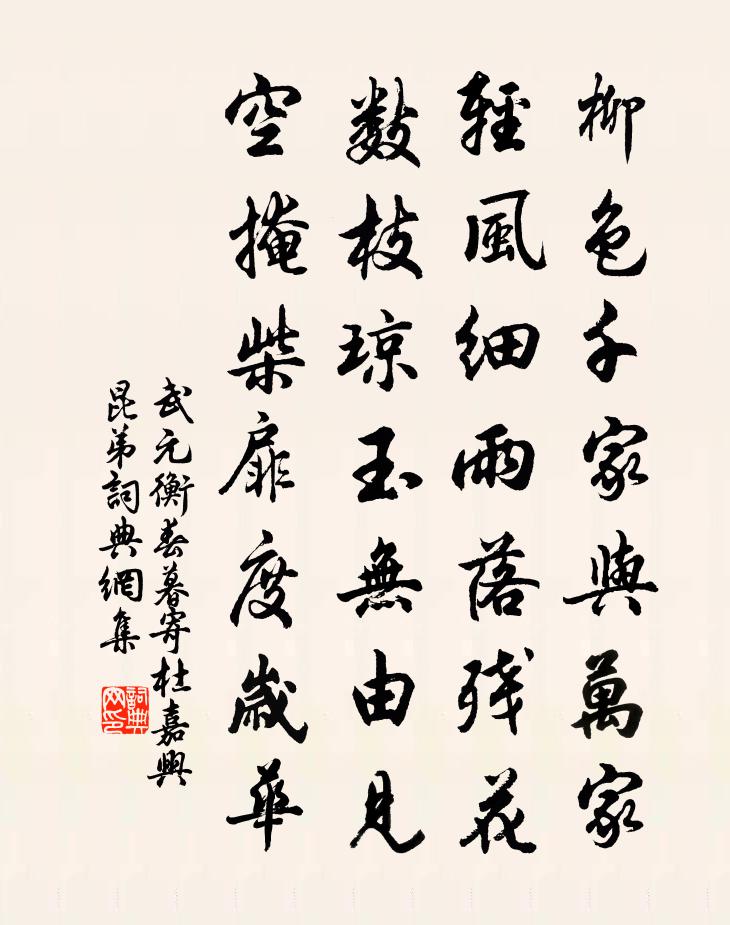 柳色千家與萬家
輕風細雨落殘花
數枝瓊玉無由見
空掩柴扉度歲華
武元衡春暮寄杜嘉興
昆弟詞典網集
詞典
网印